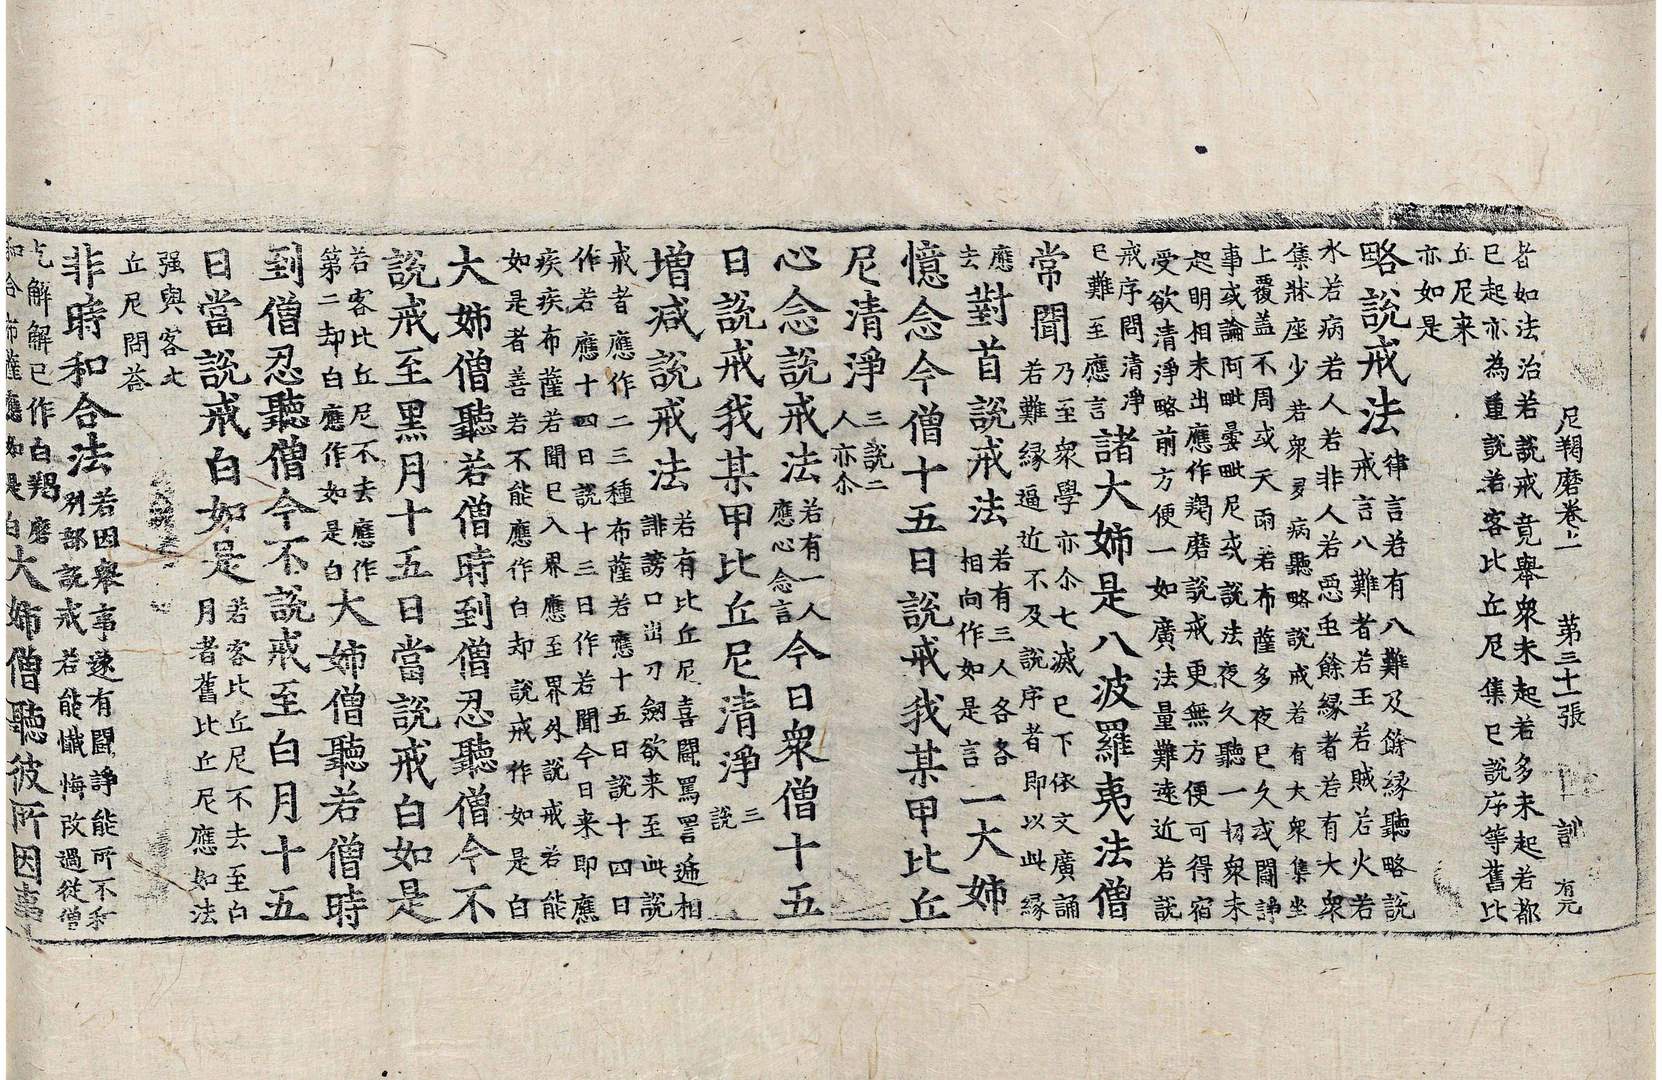 尼羯磨卷上　第三十張　訓　有元
者如法治若說戒竟舉衆未起若多未起若都
已起亦為重說若客比丘尼集已說序等舊比
丘尼来
亦如是
略說戒法
律言若有八難及餘緣聽略說
戒言八難者若王若賊若火若
水若病若人若非人若惡虫餘緣者若有大衆
集牀座少若衆多病聽略說戒若有大衆集坐
上覆盖不周或天雨若布薩多夜已久或鬪諍
事或論阿毗曇毗尼或說法夜久聽一切衆未
起明相未出應作羯磨說戒更無方便可得宿
受欲清淨略前方便一如廣法量難遠近若說
戒序問清淨
已難至應言
諸大姉是八波羅夷法僧
常聞
乃至衆學亦尒七滅已下依文廣誦
若難緣逼近不及說序者即以此緣
應
去
對首說戒法
若有三人各各
相向作如是言
一大姉
憶念今僧十五日說戒我某甲比丘
尼清淨
三說二
人亦尒
心念說戒法
若有一人
應心念言
今日衆僧十五
日說戒我某甲比丘尼清淨
三
說
增减說戒法
若有比丘尼喜鬪罵詈遞相
誹謗口出刀劒欲来至此說
戒者應作二三種布薩若應十五日說十四日
作若應十四日說十三日作若聞今日来即應
疾疾布薩若聞已入界應至界外說戒若能
如是者善若不能應作白却說戒作如是白
大姉僧聽若僧時到僧忍聽僧今不
說戒至黑月十五日當說戒白如是
若客比丘尼不去應作
第二却白應作如是白
大姉僧聽若僧時
到僧忍聽僧今不說戒至白月十五
日當說戒白如是
若客比丘尼不去至白
月者舊比丘尼應如法
强與客比
丘尼問荅
非時和合法
若因舉事遂有鬪諍能所不和
別部說戒若能懺悔改過從僧
乞解解已作白羯磨
和合布薩應如是白
大姉僧聽彼所因事